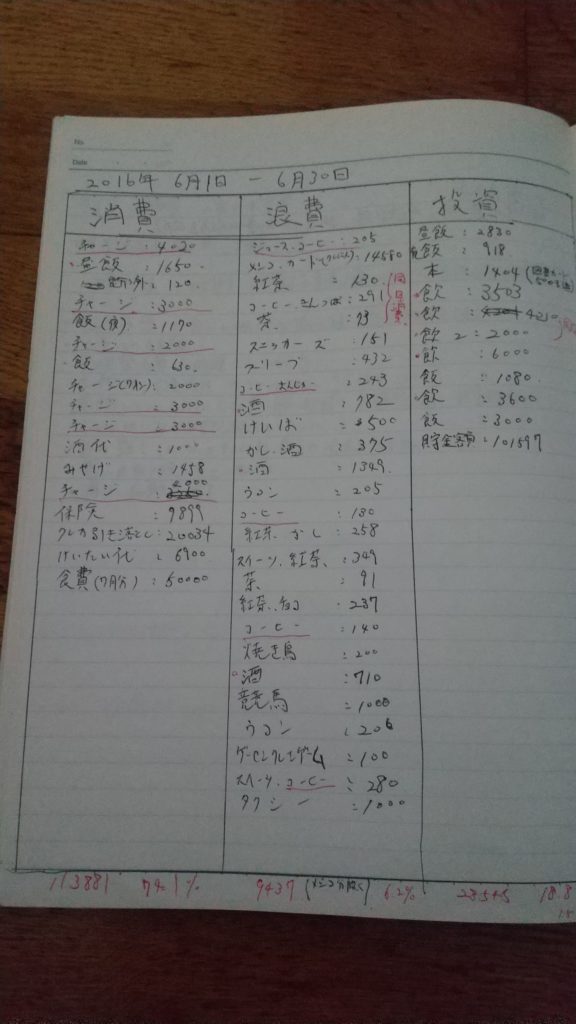 No.
Date
2016年 6月1日 ー 6月30日
消費
チャージ : 4020
昼飯 : 1650
: 120
チャージ : 3000
飯(夜) : 1170
チャージ : 2000
飯 : 630
チャージ : 2000
チャージ : 3000
チャージ : 3000
酒代 : 1000
みやげ : 1458
チャージ : 2000
保険 : 9899
クレカ引き落とし : 20034
けいたい代 : 6900
食費(7月分) : 50000
浪費
ジュース.コーヒー : 205
: 14580
紅茶 : 130
コーヒー : 291
茶 : 93
同日消費
スニッカーズ : 151
: 432
コーヒー : 243
酒 : 782
けいば : 500
かし.酒 : 375
酒 : 1349
ウコン : 205
コーヒー : 180
紅茶.かし : 258
スイーツ.紅茶 : 349
茶 : 91
紅茶.チョコ : 237
コーヒー : 140
焼き鳥 : 200
酒 : 710
競馬 : 1000
ウコン : 206
: 100
スイーツ.コーヒー : 280
タクシー : 1000
投資
昼飯 : 2830
飯 : 918
本 : 1404
飲 : 3503
飲 : 4210
飲 2 : 2000
飲 : 6000
飯 : 1080
飲 : 3600
飯 : 3000
貯金額 : 101597
113881 74.1%
9437 (メシコカ除く) 6.2%
18.8